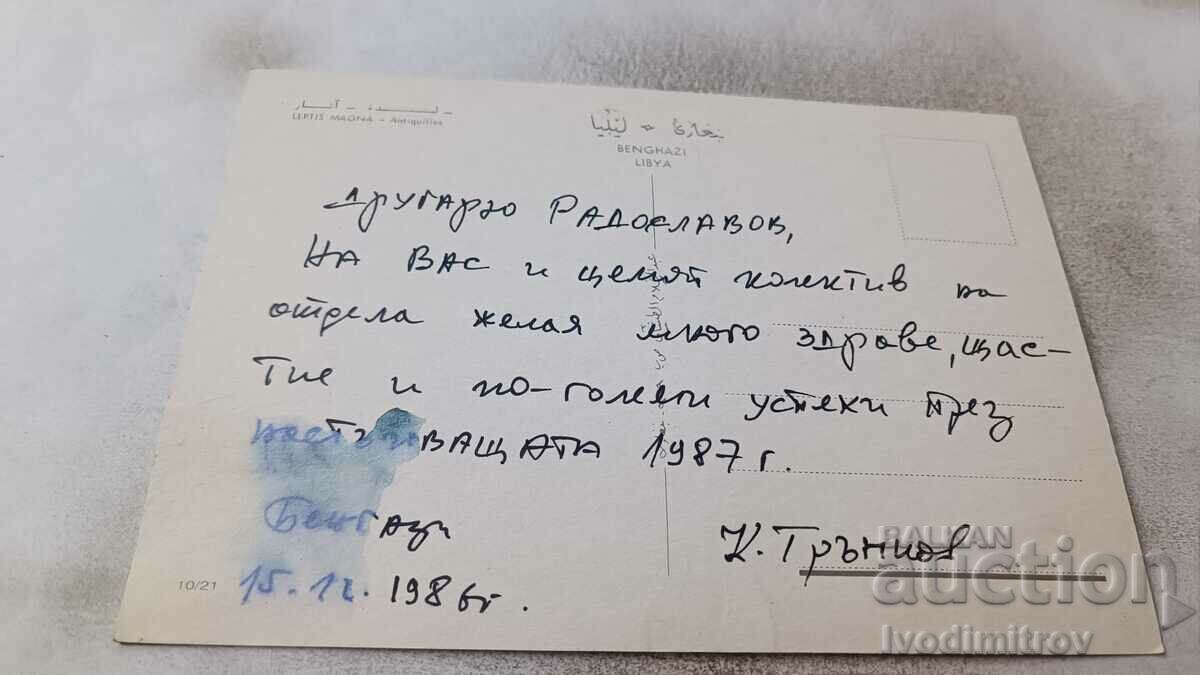 لبدة - آثار -
LEPTIS MAGNA - Antiquities
بنغازي - ليبيا
BENGHAZI
LIBYA
Другарю Радославов,
На Вас и целият колектив на
отдела желая много здраве, щас-
тие и по-големи успехи през
настъпващата 1987 г.
Бенгази
15.12.1986г.
К. Трънков
10/21
BALKAN
auction
Ivodimitrov